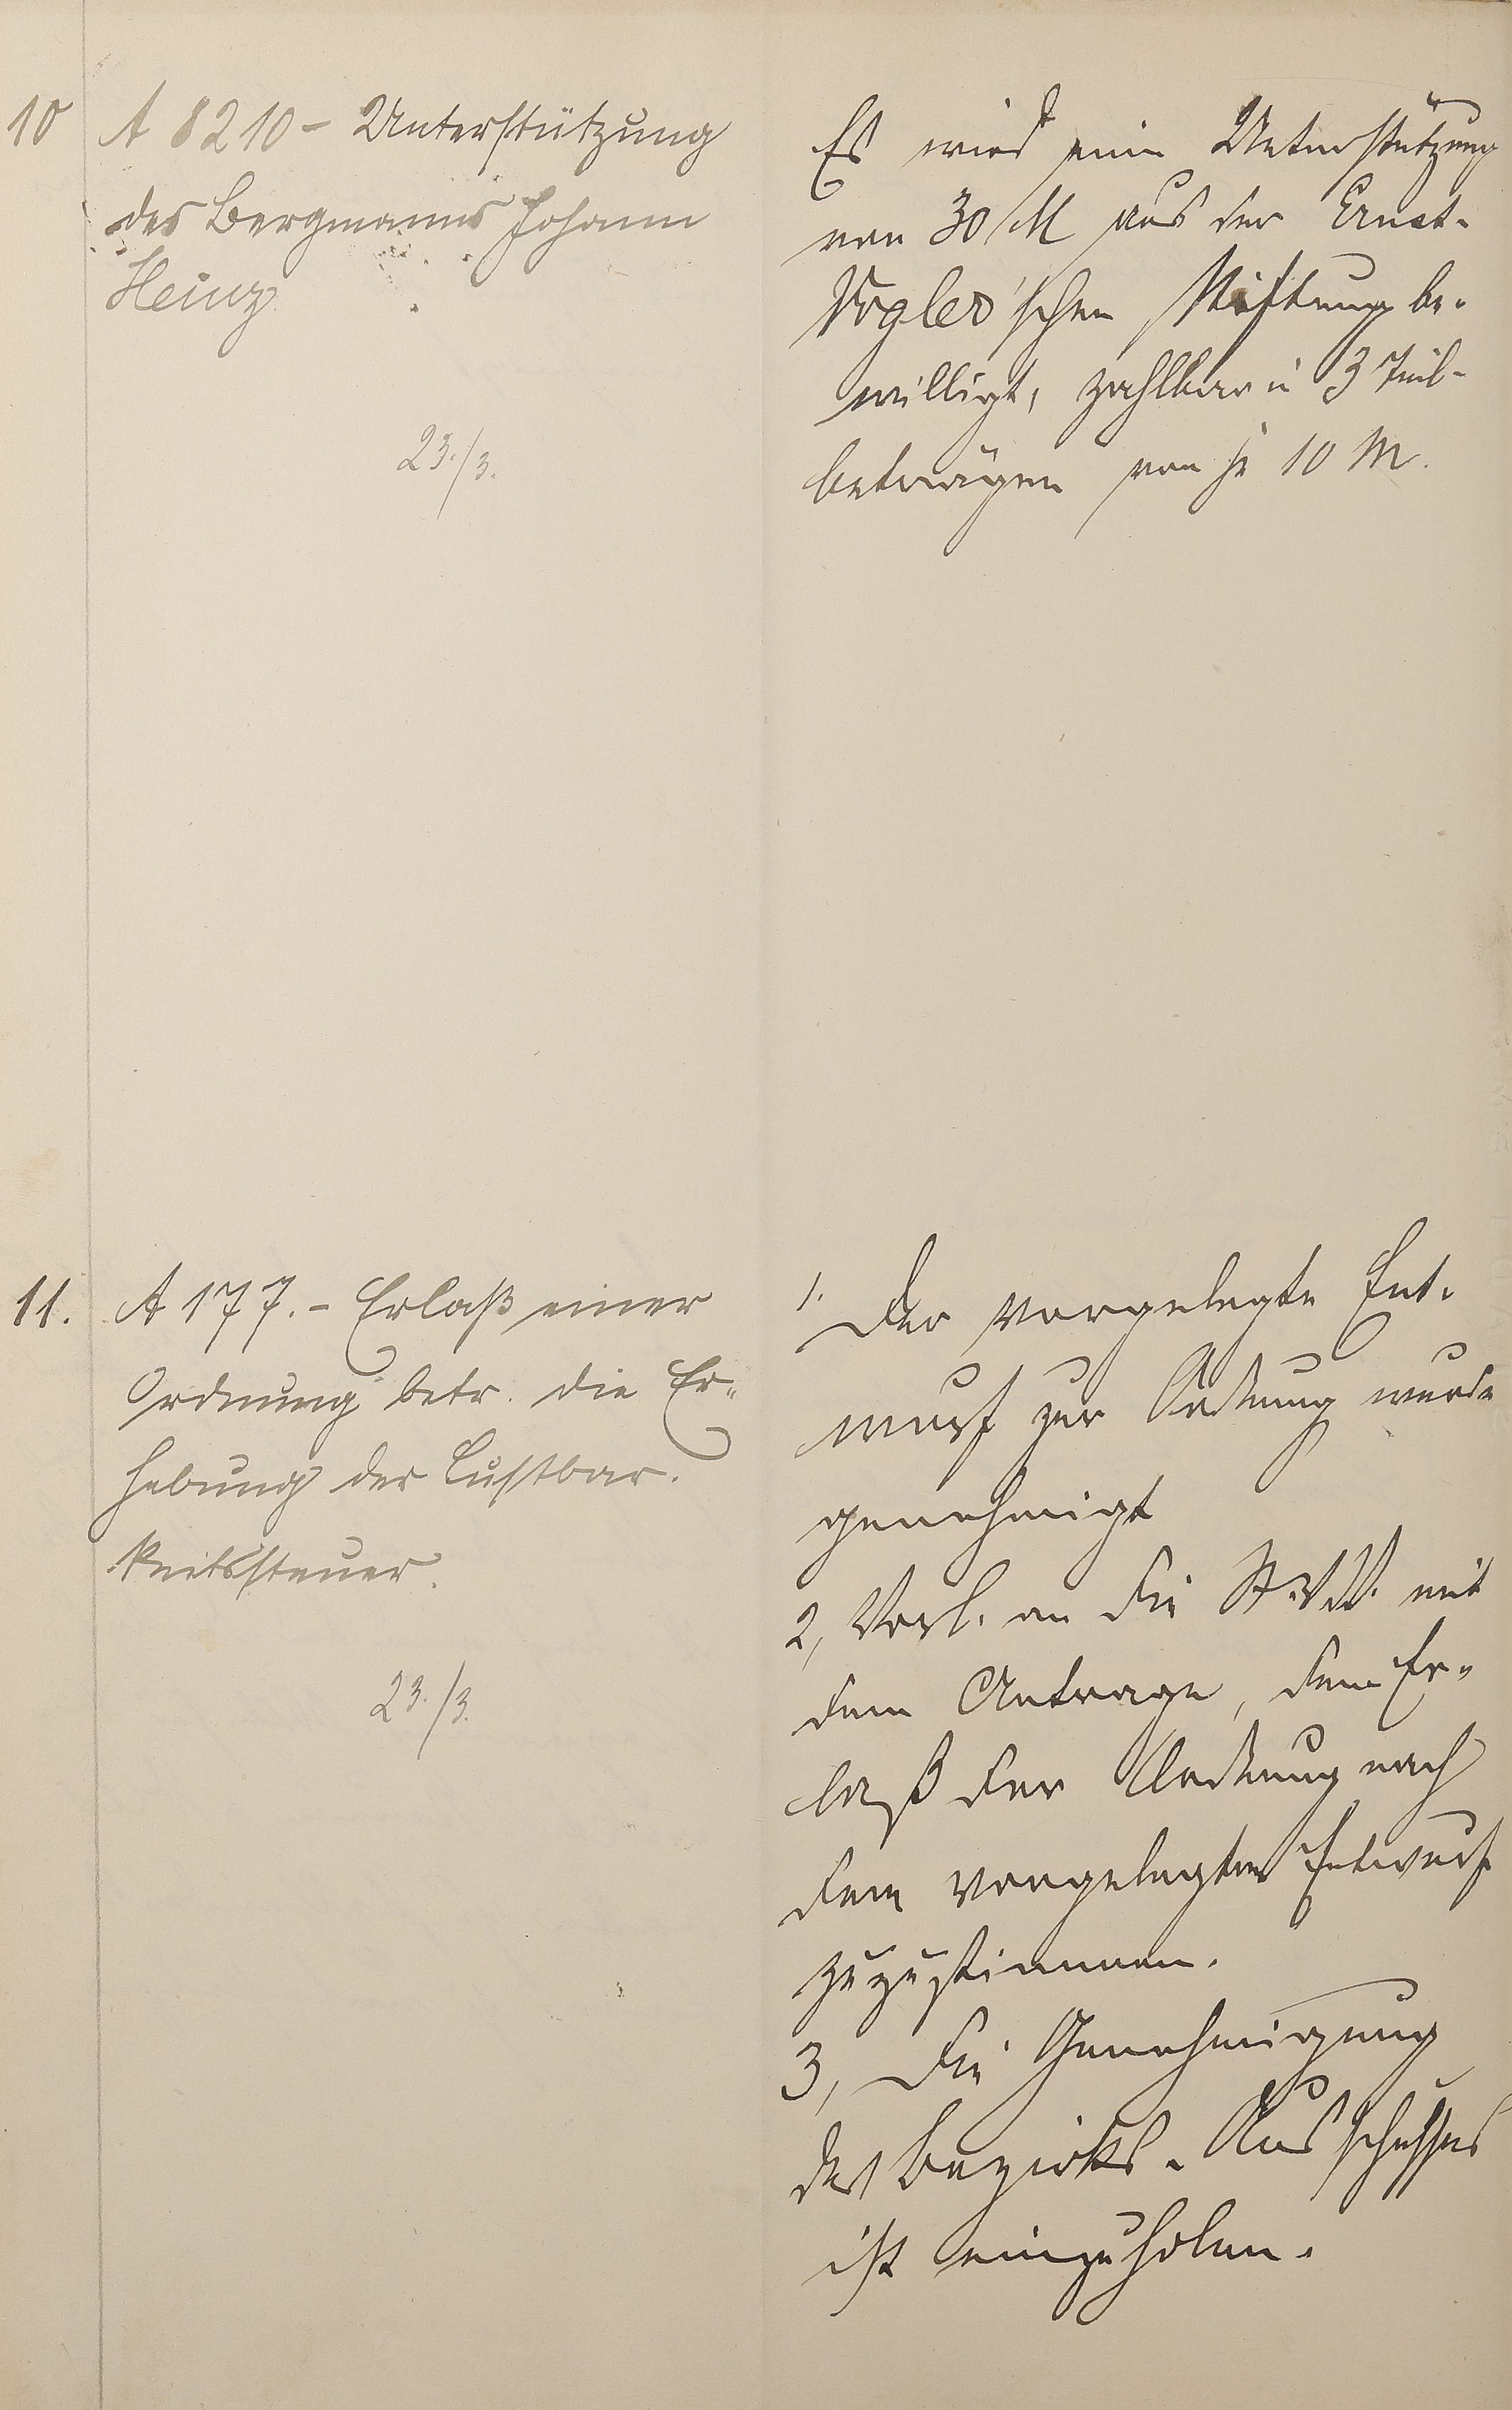 10 A 8210 - Unterstützung
des Bergmanns Johann
Heinz
23./3.
Es wird eine Unterstützung
von 30 M aus der Ernst-
Vogler'schen Stiftung be-
willigt, zahlbar in 3 Teil-
beträgen von je 10 M.
11. A 177. - Erlaß einer
Ordnung betr. die Er-
hebung der Lustbar-
keitssteuer.
23./3.
1. Der vorgelegte Ent-
wurf zur Ordnung wurde
genehmigt
2, Vorl. an die St.V.V. mit
dem Antrage, dem Er-
laß der Ordnung nach
dem vorgelegten Entwurf
zuzustimmen.
3, Die Genehmigung
des Bezirks-Ausschusses
ist einzuholen.